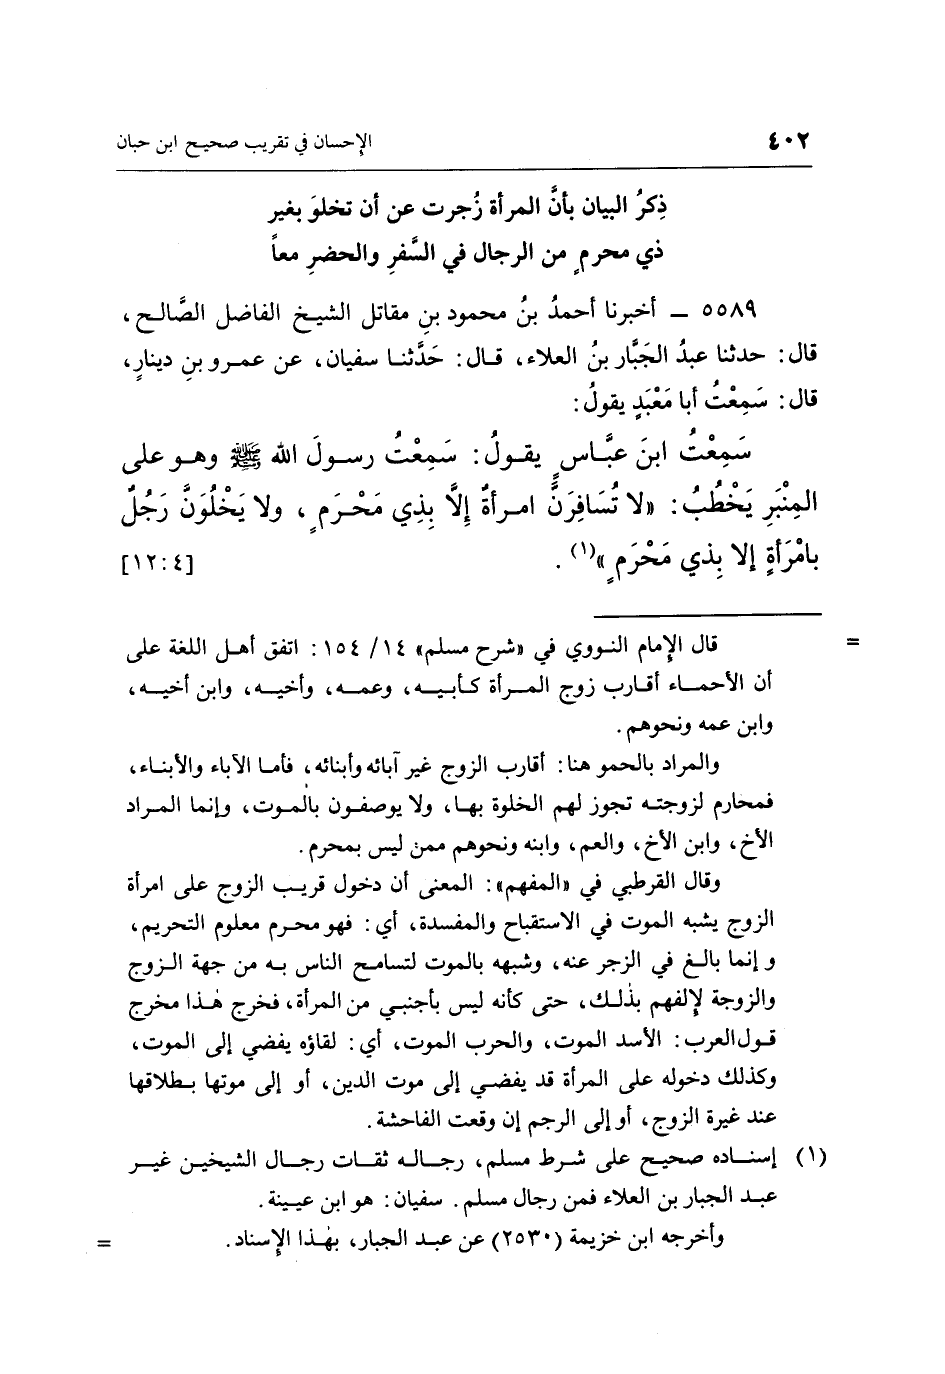 ٤٠٢ الإحسان في تقريب صحيح ابن حبان
ذِكرُ البيان بأنَّ المرأة زُجرت عن أن تخلوَ بغير
ذي محرمٍ من الرجال في السَّفرِ والحضرِ معاً
٥٥٨٩ ـ أخبرنا أحمدُ بنُ محمود بنِ مقاتل الشيخ الفاضل الصَّالح،
قال: حدثنا عبدُ الجَبَّار بنُ العلاء، قال: حَدَّثنا سفيان، عن عمرو بنِ دينارٍ،
قال: سَمِعْتُ أبا مَعْبَدٍ يقولُ:
سَمِعْتُ ابنَ عبَّاسٍ يقولُ: سَمِعْتُ رسولَ الله ﷺ وهو على
المِنْبَرِ يَخْطُبُ: «لا تُسَافِرَنَّ امرأةٌ إلَّا بِذِي مَحْرَمٍ، ولا يَخْلُوَنَّ رَجُلٌ
بامْرَأةٍ إلا بِذي مَحْرَمٍ»(١). [٤: ١٢]
= قال الإمام النووي في «شرح مسلم» ١٤/ ١٥٤: اتفق أهل اللغة على
أن الأحماء أقارب زوج المرأة كأبيه، وعمه، وأخيه، وابن أخيه،
وابن عمه ونحوهم.
والمراد بالحمو هنا: أقارب الزوج غير آبائه وأبنائه، فأما الآباء والأبناء،
فمحارم لزوجته تجوز لهم الخلوة بها، ولا يوصفون بالموت، وإنما المراد
الأخ، وابن الأخ، والعم، وابنه ونحوهم ممن ليس بمحرم.
وقال القرطبي في «المفهم»: المعنى أن دخول قريب الزوج على امرأة
الزوج يشبه الموت في الاستقباح والمفسدة، أي: فهو محرم معلوم التحريم،
وإنما بالغ في الزجر عنه، وشبهه بالموت لتسامح الناس به من جهة الزوج
والزوجة لإلفهم بذٰلك، حتى كأنه ليس بأجنبي من المرأة، فخرج هٰذا مخرج
قول العرب: الأسد الموت، والحرب الموت، أي: لقاؤه يفضي إلى الموت،
وكذلك دخوله على المرأة قد يفضي إلى موت الدين، أو إلى موتها بطلاقها
عند غيرة الزوج، أو إلى الرجم إن وقعت الفاحشة.
(١) إسناده صحيح على شرط مسلم، رجاله ثقات رجال الشيخين غير
عبد الجبار بن العلاء فمن رجال مسلم. سفيان: هو ابن عيينة.
وأخرجه ابن خزيمة (٢٥٣٠) عن عبد الجبار، بهٰذا الإسناد. =